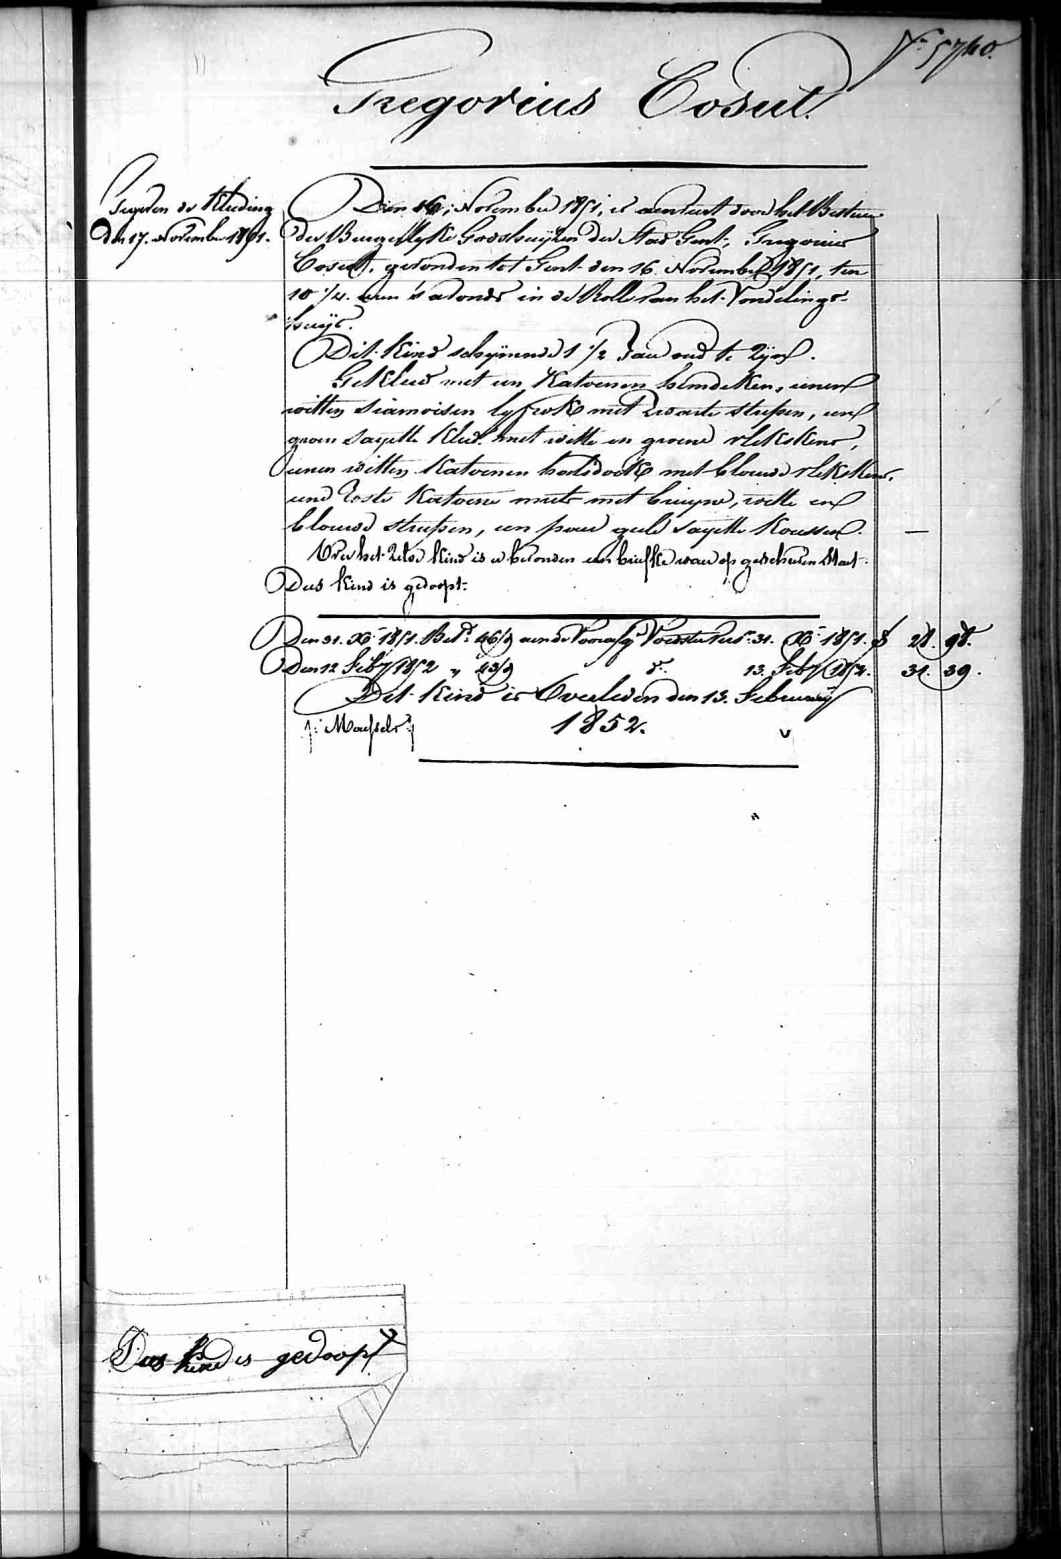 N.º 5740.
Gregorius Cosut.
Gegeven de Kleeding
den 17. November 1851.
Den 16, November 1851, is aenveert door het Bestuur
der Burgerlyke Godshuyzen der Stad Gent, Gregorius
Cosut, gevonden tot Gent den 16. November 1851, ten
10 1/4 uren 's avonds in de Rolle van het Vondelings-
huys.
Dit Kind schynende 1 1/2 Jaer oud te zyn.
Gekleed met een Katoenen hemdeken, eenen
witten siamoisen lyfrok met zwarte streepen, een
groen sayette Kleed met witte en groene vlekskens,
eenen witten Katoenen halsdoek met blauwe vlekskens,
eene Katoene muts met bruyne, witte en
blauwe streepen, een paer gele sayette Koussen.
Over het zelve Kind is er bevonden een briefke waer op geschreven staet
Dees kind is gedoopt.
Den 31. Xb 1851. Bet. 46/9 aen de Voedster tot 31. Xb 1851. f 28. 98.
Den 12 Feby 1852 " 43/9 d.º 13. Feby 1852. 31. 39.
Dit Kind is Overleden den 13. February
1852.
Dees kind is gedoopt